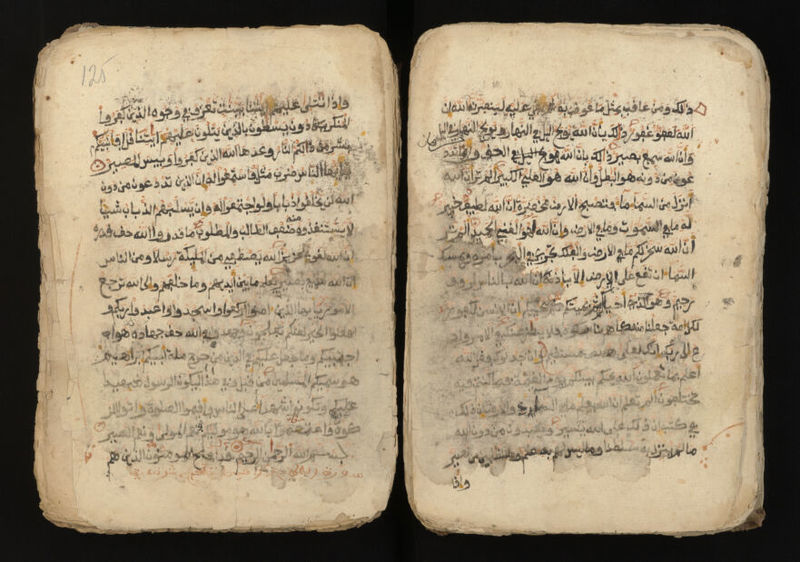 ذلك ومن عاقب بمثل ما عوقب به ثم بغي عليه لينصرنه الله ان
الله لعفو غفور ذلك بأن الله يولج اليل في النهار ويولج النهار في اليل
وأن الله سميع بصير ذلك بأن الله هو الحق وأن ما يد
عون من دونه هو البطل وأن الله هو العلي الكبير ألم تر أن الله
أنزل من السماء ماء فتصبح الارض مخضرة ان الله لطيف خبير
له ما في السموت وما في الارض وان الله لهو الغني الحميد ألم تر
أن الله سخر لكم ما في الارض والفلك تجري في البحر بأمره ويمسك
السماء ان تقع على الارض الا بإذنه ان الله بالناس لروف
رحيم وهو الذي أحياكم ثم يميتكم ثم يحييكم ان الانسن لكفور
لكل أمة جعلنا منسكا هم ناسكوه فلا ينزعنك في الامر وادع
الى ربك انك لعلى هدى مستقيم وان جدلوك فقل الله
أعلم بما تعملون الله يحكم بينكم يوم القيمة فيما كنتم فيه
تختلفون ألم تعلم ان الله يعلم ما في السماء والارض ان ذلك
في كتب ان ذلك على الله يسير ويعبدون من دون الله
ما لم ينزل به سلطنا وما ليس لهم به علم وما للظلمين من نصير
واذا
125
واذا تتلى عليهم ايتنا بينت تعرف في وجوه الذين كفروا
المنكر يكادون يسطون بالذين يتلون عليهم ايتنا قل افانبيكم
بشر من ذلكم النار وعدها الله الذين كفروا وبيس المصير
يأيها الناس ضرب مثل فاستمعوا له ان الذين تدعون من دون
الله لن يخلقوا ذبابا ولو اجتمعوا له وان يسلبهم الذباب شيئا
لا يستنقذوه منه ضعف الطالب والمطلوب ما قدروا الله حق قدره
ان الله لقوي عزيز الله يصطفي من المليكة رسلا ومن الناس
ان الله سميع بصير يعلم ما بين ايديهم وما خلفهم والى الله ترجع
الامور يأيها الذين امنوا اركعوا واسجدوا واعبدوا ربكم و
افعلوا الخير لعلكم تفلحون وجهدوا في الله حق جهاده هو ا
جتبيكم وما جعل عليكم في الدين من حرج ملة ابيكم ابراهيم
هو سميكم المسلمين من قبل وفي هذا ليكون الرسول شهيدا
عليكم وتكونوا شهداء على الناس فاقيموا الصلوة واتوا الز
كوة واعتصموا بالله هو موليكم فنعم المولى ونعم النصير
بسم الله الرحمن الرحيم قد افلح المومنون الذين هم